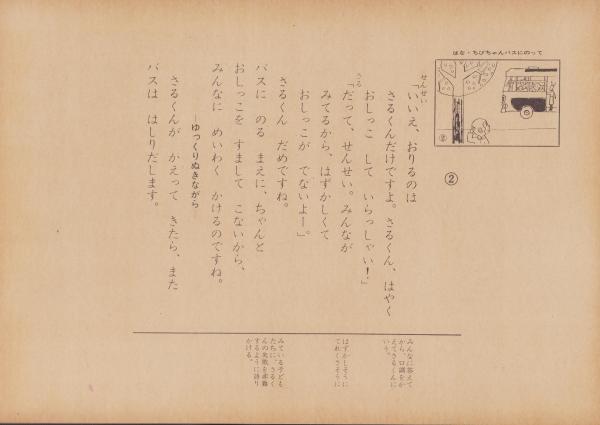 はな・ちびちゃんバスにのって
②
②
せんせい
「いいえ、おりるのは
さるくんだけですよ。さるくん、はやく
おしっこ して いらっしゃい！」
さる
「だって、せんせい。みんなが
みてるから、はずかしくて
おしっこが でないよー」。
さるくん だめですね。
バスに のる まえに、ちゃんと
おしっこを すまして こないから、
みんなに めいわく かけるのですね。
―ゆっくりぬきながら
さるくんが かえって きたら、また
バスは はしりだします。
みんなに答えて
から、口調をか
えてさるくんに
いう。
はずかしそうに
てれくさそうに
みている子ども
たちに、さるく
んの失敗を非難
するように語り
かける。